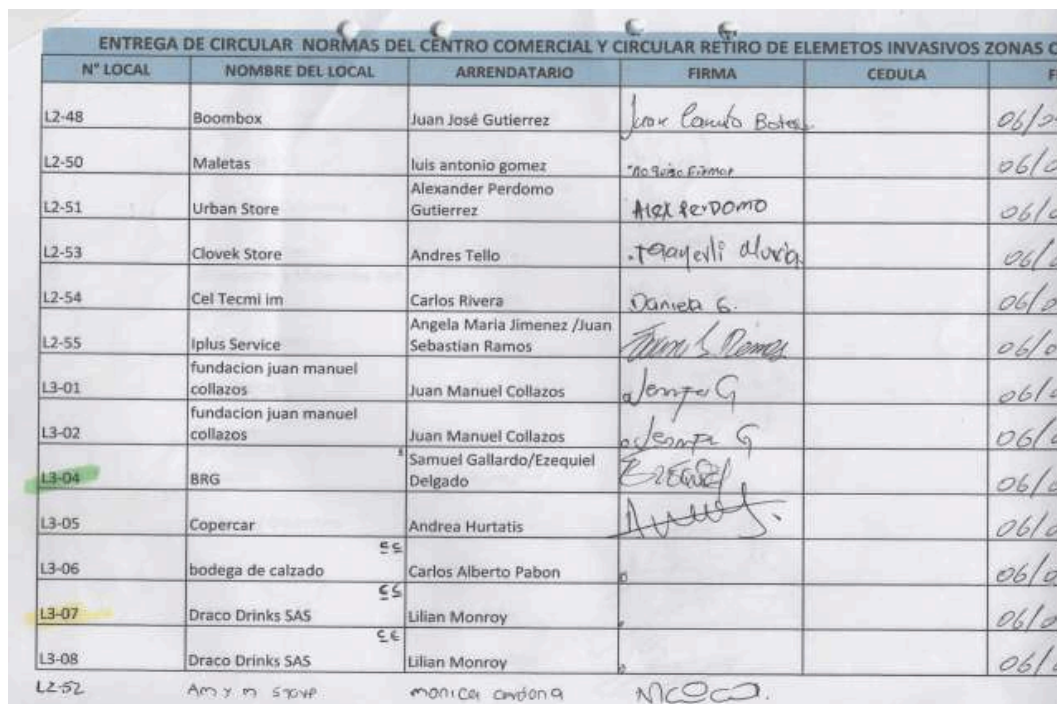 ENTREGA DE CIRCULAR NORMAS DEL CENTRO COMERCIAL Y CIRCULAR RETIRO DE ELEMETOS INVASIVOS ZONAS C
N° LOCAL NOMBRE DEL LOCAL ARRENDATARIO FIRMA CEDULA F
L2-48 Boombox Juan José Gutierrez Juan Camilo 06/
L2-50 Maletas luis antonio gomez no quiso Firmar 06/
L2-51 Urban Store Alexander Perdomo
Gutierrez Alex PerDomo 06/
L2-53 Clovek Store Andres Tello 06/
L2-54 Cel Tecmi im Carlos Rivera Daniela G. 06/
L2-55 Iplus Service Angela Maria Jimenez /Juan
Sebastian Ramos Ramos 06/
L3-01 fundacion juan manuel
collazos Juan Manuel Collazos G 06/
L3-02 fundacion juan manuel
collazos Juan Manuel Collazos G 06/
L3-04 BRG Samuel Gallardo/Ezequiel
Delgado EZEQUIEL 06/
L3-05 Copercar Andrea Hurtatis 06/
L3-06 bodega de calzado Carlos Alberto Pabon 06/
L3-07 Draco Drinks SAS Lilian Monroy 06/
L3-08 Draco Drinks SAS Lilian Monroy 06/
L2-52 Am y m store monica cardona